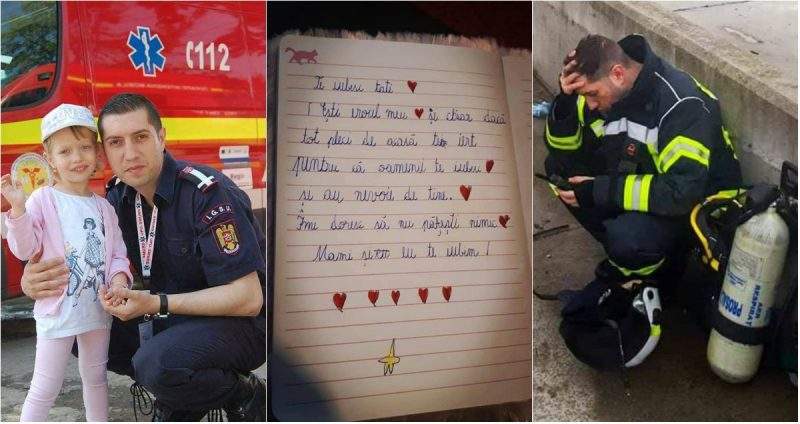 ✆112
I.G.S.U.
Te iubesc tati
Ești eroul meu și chiar dacă
tot pleci de acasă te iert
pentru că oamenii te iubesc
și au nevoie de tine.
Îmi doresc să nu pățești nimic
Mami și eu te iubim!